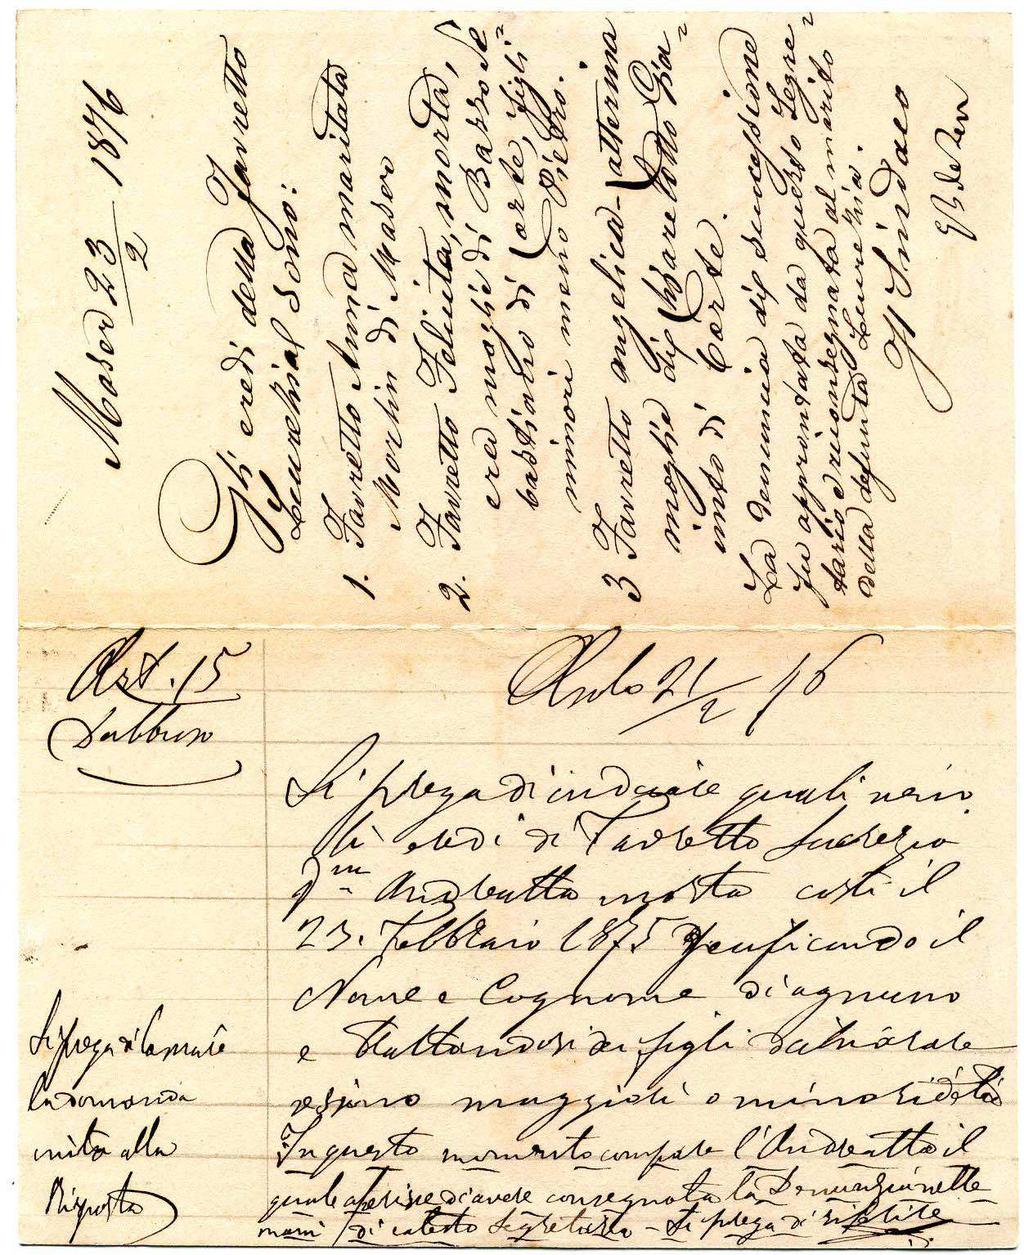 Art. 15
Asolo 21/2 76
Si prega di indicare quali siano
li eredi di Favretto Lucrezia
qm Andreatta morta costì il
23. Febbraio 1875 specificando il
Nome e Cognome di ognuno
e trattandosi di figli dichiarare
se siano maggiori o minori d'età
In questo momento compare l'Andreatta il
quale asserisce d'avere consegnata la Denunzia nelle
mani di codesto Segretario - Si prega di
Si prega di tornare
la domanda
unita alla
Risposta
Maser 23/2 1876
Gli eredi della Favretto
Lucrezia sono:
1. Favretto Anna maritata
Martin di Maser
2. Favretto Felicita, morta,
era moglie di Basso Se=
bastiano di Coste, figli
minori meno Pietro.
3 Favretto Angelica-Catterina
moglie di Chiaretto Gia=
cinto di Coste.
La denuncia di successione
fu approntata da questo Segre=
tario e riconsegnata al marito
della defunta Lucrezia.
Il Sindaco